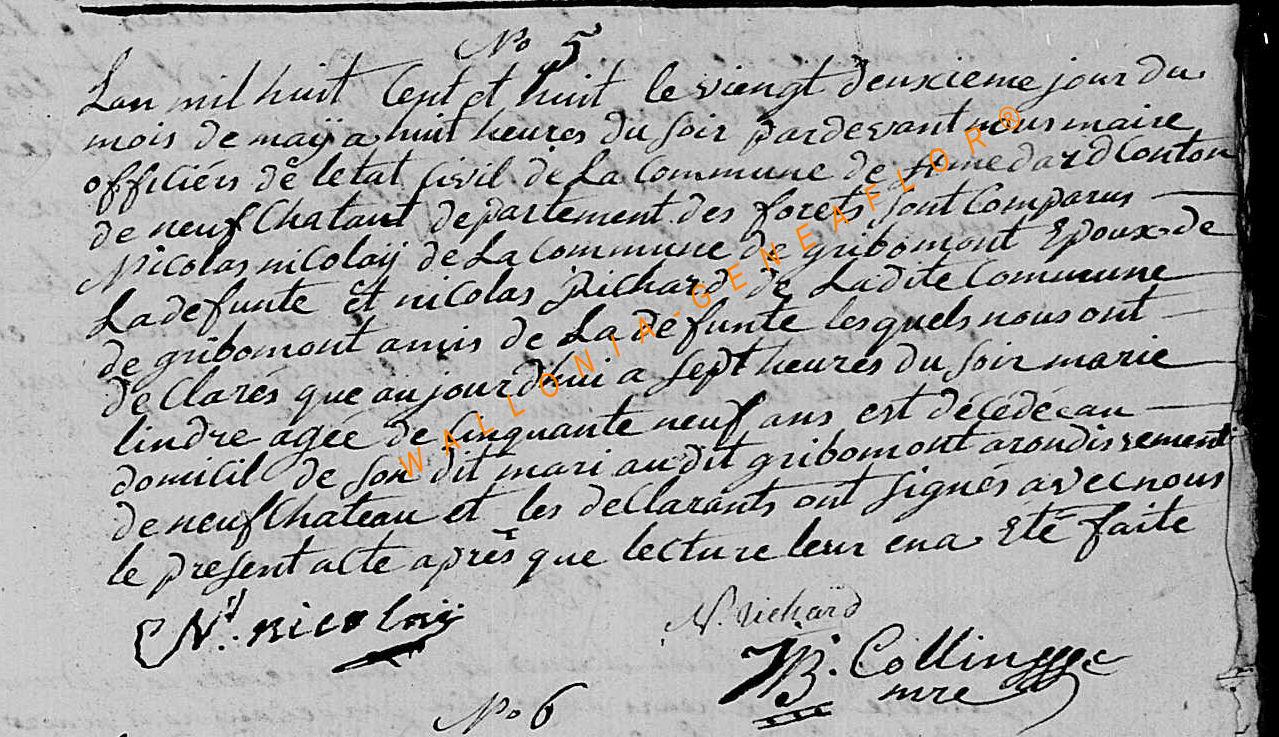 No 5
Lan mil huit Cent et huit le viengt deuxieme jour du
mois de maÿ a huit heures du soir pardevant nous maire
officiérs de letat civil de La Commune de st medard Conton
de neufChatant departement des forets sont Comparus
Nicolas nicolaÿ de La Commune de gribomont Epoux de
La defunte et nicolas Richard de Ladite Commune
de gribomont amis de La défunte lesquels nous ont
de Clarés que aujourdhui a sept heures du soir marie
lindre agée de Cinquante neuf ans est décédée au
domicil de son dit mari audit gribomont arondissement
de neufChateau et les deClarants ont signés avec nous
le present acte après que lecture leur en a Eté faite
N. nicolaÿ
N. Richard
JB. Collingge
mre
No 6
WALLONIA-GENEAFLOR®